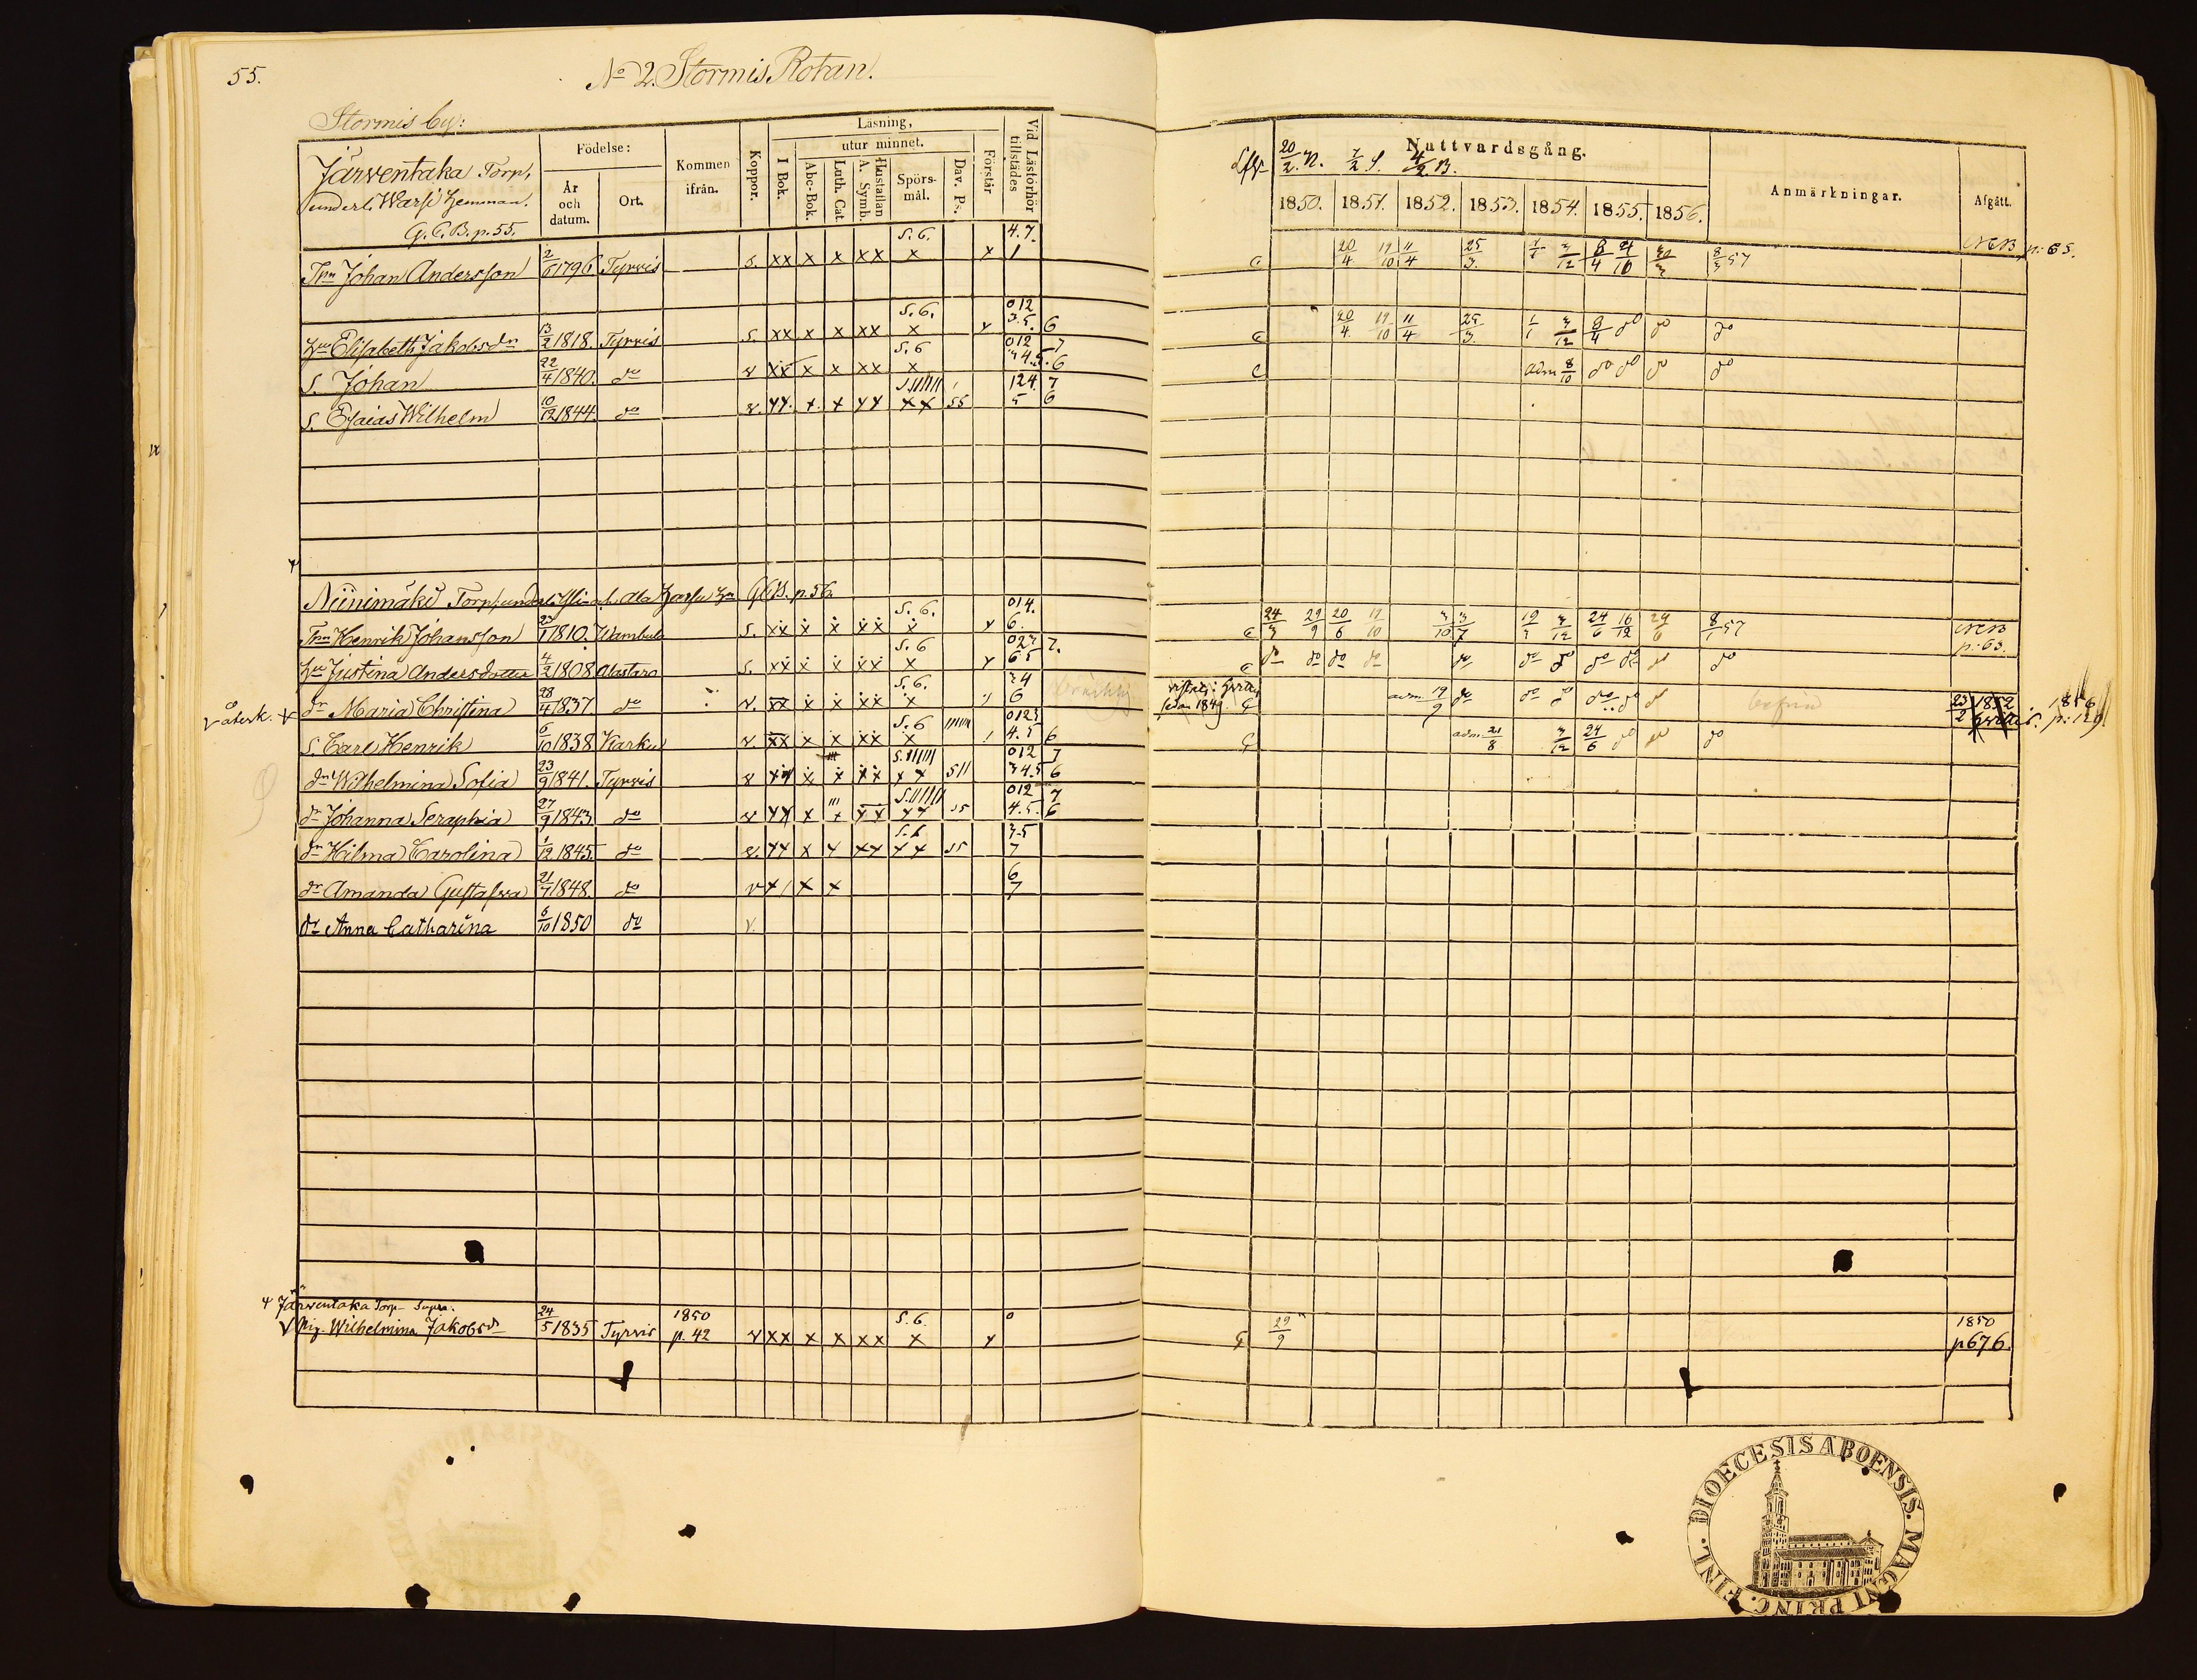 55.
No 2. Stormis Rotan.
Stormis by:
Järventaka Torp,
underl. Warsi hemman.
G. C. B. p. 55.
Födelse: År och datum. Ort.
Kommen ifrån.
Koppor.
Läsning,
I Bok.
utur minnet.
Abc-Bok. Luth. Cat. A. Symb. Hustaflan Spörs-mål. Dav. Ps.
Förstår
Vid Läsförhör tillstädes
Nattvardsgång.
20/2 N. 7/2 S. 4/2 B.
1850. 1851. 1852. 1853. 1854. 1855. 1856.
Anmärkningar.
Afgått.
Tpn Johan Andersson 2/6 1796 Tyrvis S. xx x x xx S. 6. x x 4. 7. 1 20/4 19/10 11/4 25/3 8/3 57 NCB p: 65.
Hu Elisabeth Jakobsdr 13/2 1818. Tyrvis S. xx x x xx S. 6. x 012 3.5. 6 20/4 19/10 11/4 25/3 do do do
S. Johan 22/4 1840. do v xx x x xx S. 6 x 012 7 3 4.5. 6 adm 8/10 do do do do
S. Esaias Wilhelm 10/12 1844. do v. xx. x. x xx xx 55 124. 7 5 6
Niinimäki Torp, underl. Yli och Ala Harsu Hn GCB. p. 56.
Tpn Henrik Johansson 23/1 1810. Wambula S. xx x x xx S. 6. x 014. 6. 24/3 29/9 20/6 19/10 24/6 16/12 24/6 8/1 57 NCB p: 63.
Hu Justina Andersdotter 4/2 1808 Alastaro S. xx x x xx S. 6 x 023 7. 6 5 do do do do do do do do do do do
återk. dr Maria Christina 28/4 1837. do v. xx x x xx S. 6. x 3 4 6 sedan 1849. adm. 19/9 do do do do do 23/2 1852 1856 p: 129
S. Carl Henrik 6/10 1838 Karku v. xx x x xx S. 6 x 0123 4. 5 6 adm. 21/8 24/6 do do do
dr Wilhelmina Sofia 23/9 1841. Tyrvis v xx x x xx x x 511 012 7 3 4.5 6
dr Johanna Seraphia 27/9 1843 do v xx x x xx xx 012 7 4. 5. 6
dr Hilma Carolina 1/12 1845. do v. xx x x xx S. 6 xx 3.5 7
dr Amanda Gustafva 21/7 1848. do v x x x 6 7
dr Anna Catharina 6/10 1850 do v.
Järventaka Torp Supra.
Pig. Wilhelmina Jakobsdr 24/5 1835 Tyrvis 1850 p. 42 v xx x x xx S. 6. x x 0 29/9 1850 p 676.
DIOECESIS ABOENSIS. MAGNI PRINC. FINL.